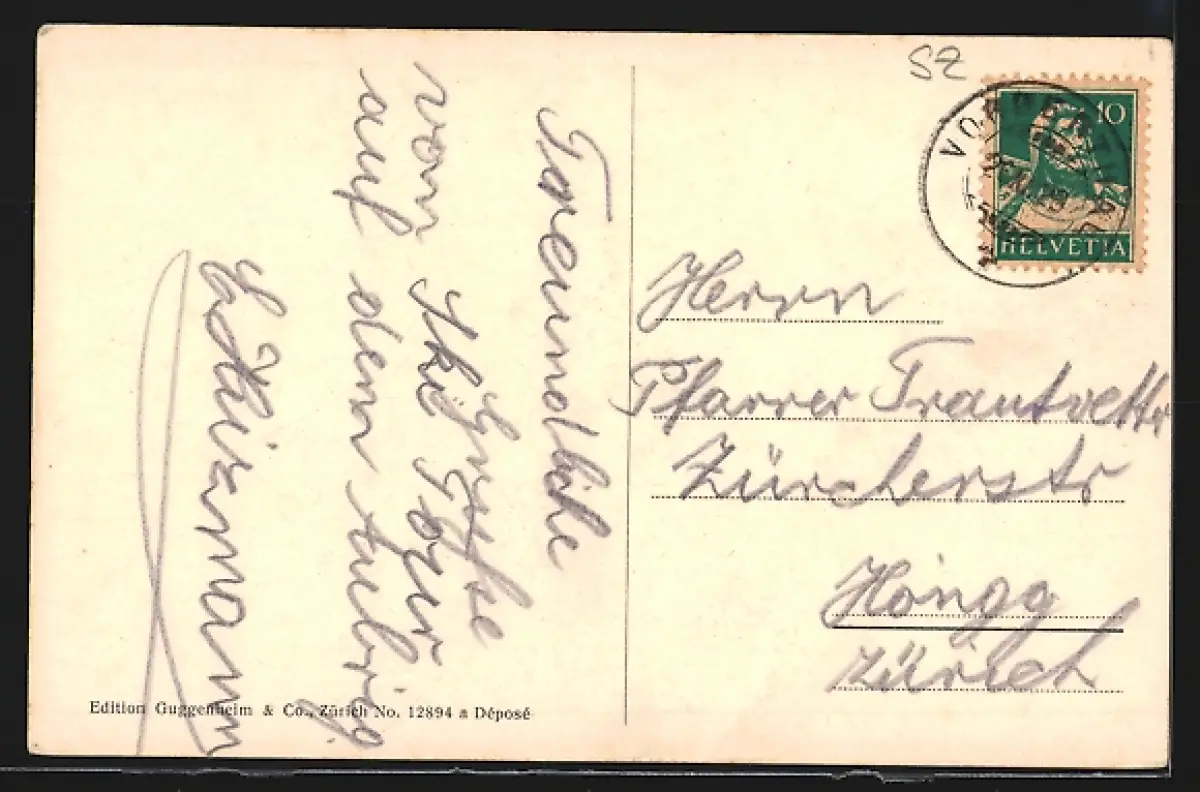 Freundliche
Grüsse
von Ski Tour
auf dem
E. Heizmann
SZ
10
HELVETIA
Herrn
Pfarrer Trautvetter
Zürcherstr
Höngg
Zürich
Edition Guggenheim & Co., Zürich No. 12894 a Déposé